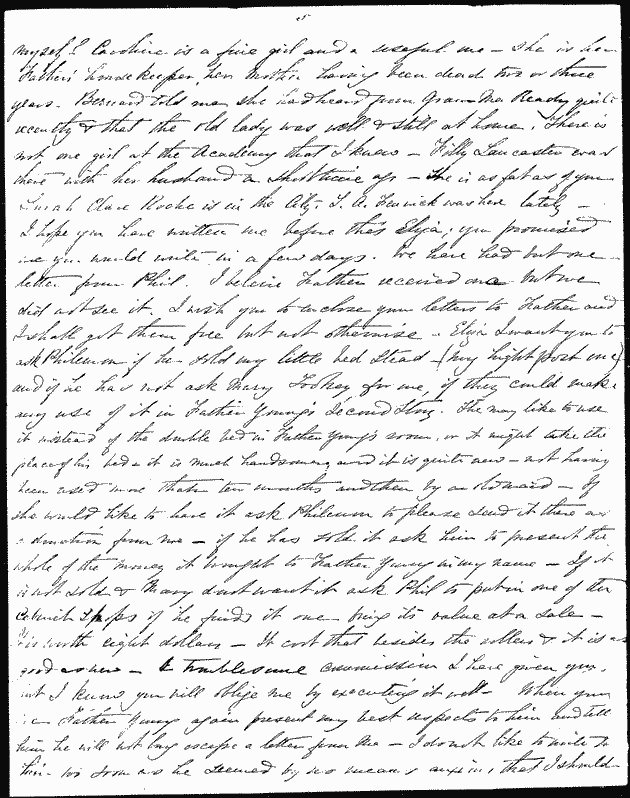 myself? Caroline is a fine girl and a useful one – she is her
Father's housekeeper, her Mother having been dead two or three
years. Bernard told me she had heard from Grand Ma Ready quite
recently & that the old lady was well & still at home. There is
not one girl at the Academy that I know – Tilly Lancaster was
there with her husband a short time ago – She is as fat as of you
Sarah Clare Roche is in the City. T. A. Fenwick was here lately –
I hope you have written me before this Eliza; you promised
me you would write in a few days. We have had but one
letter from Phil. I believe Father received one but we
did not see it. I wish you to enclose your letters to Father and
I shall get them free but not otherwise – Eliza I want you to
ask Philemon if he sold my little bed stead – (my high post one)
and if he has not ask Mary for me, if they could make
any use of it in Father Young's Second Story. She may like to use
it instead of the double bed in Father Young's room, or it might take the
place of his bed & it is much handsomer, and it is quite new – not having
been used more than ten months and then by an old maid – If
she would like to have it ask Philemon to please send it there as
a donation from me – if he has sold it ask him to present the
whole of the money it brought to Father Young in my name – If it
is not sold & Mary don't want it ask Phil to put in one of the
Cabinet Shops if he finds it one bring its value at a sale –
'tis worth eight dollars – It cost that besides the rollers & it is as
good as new – A troublesome commission I have given you,
but I know you will oblige me by executing it well – When you
see Father Young again present my best respects to him and tell
him he will not long escape a letter from me – I do not like to write to
him too soon as he seemed by no means anxious that I should –